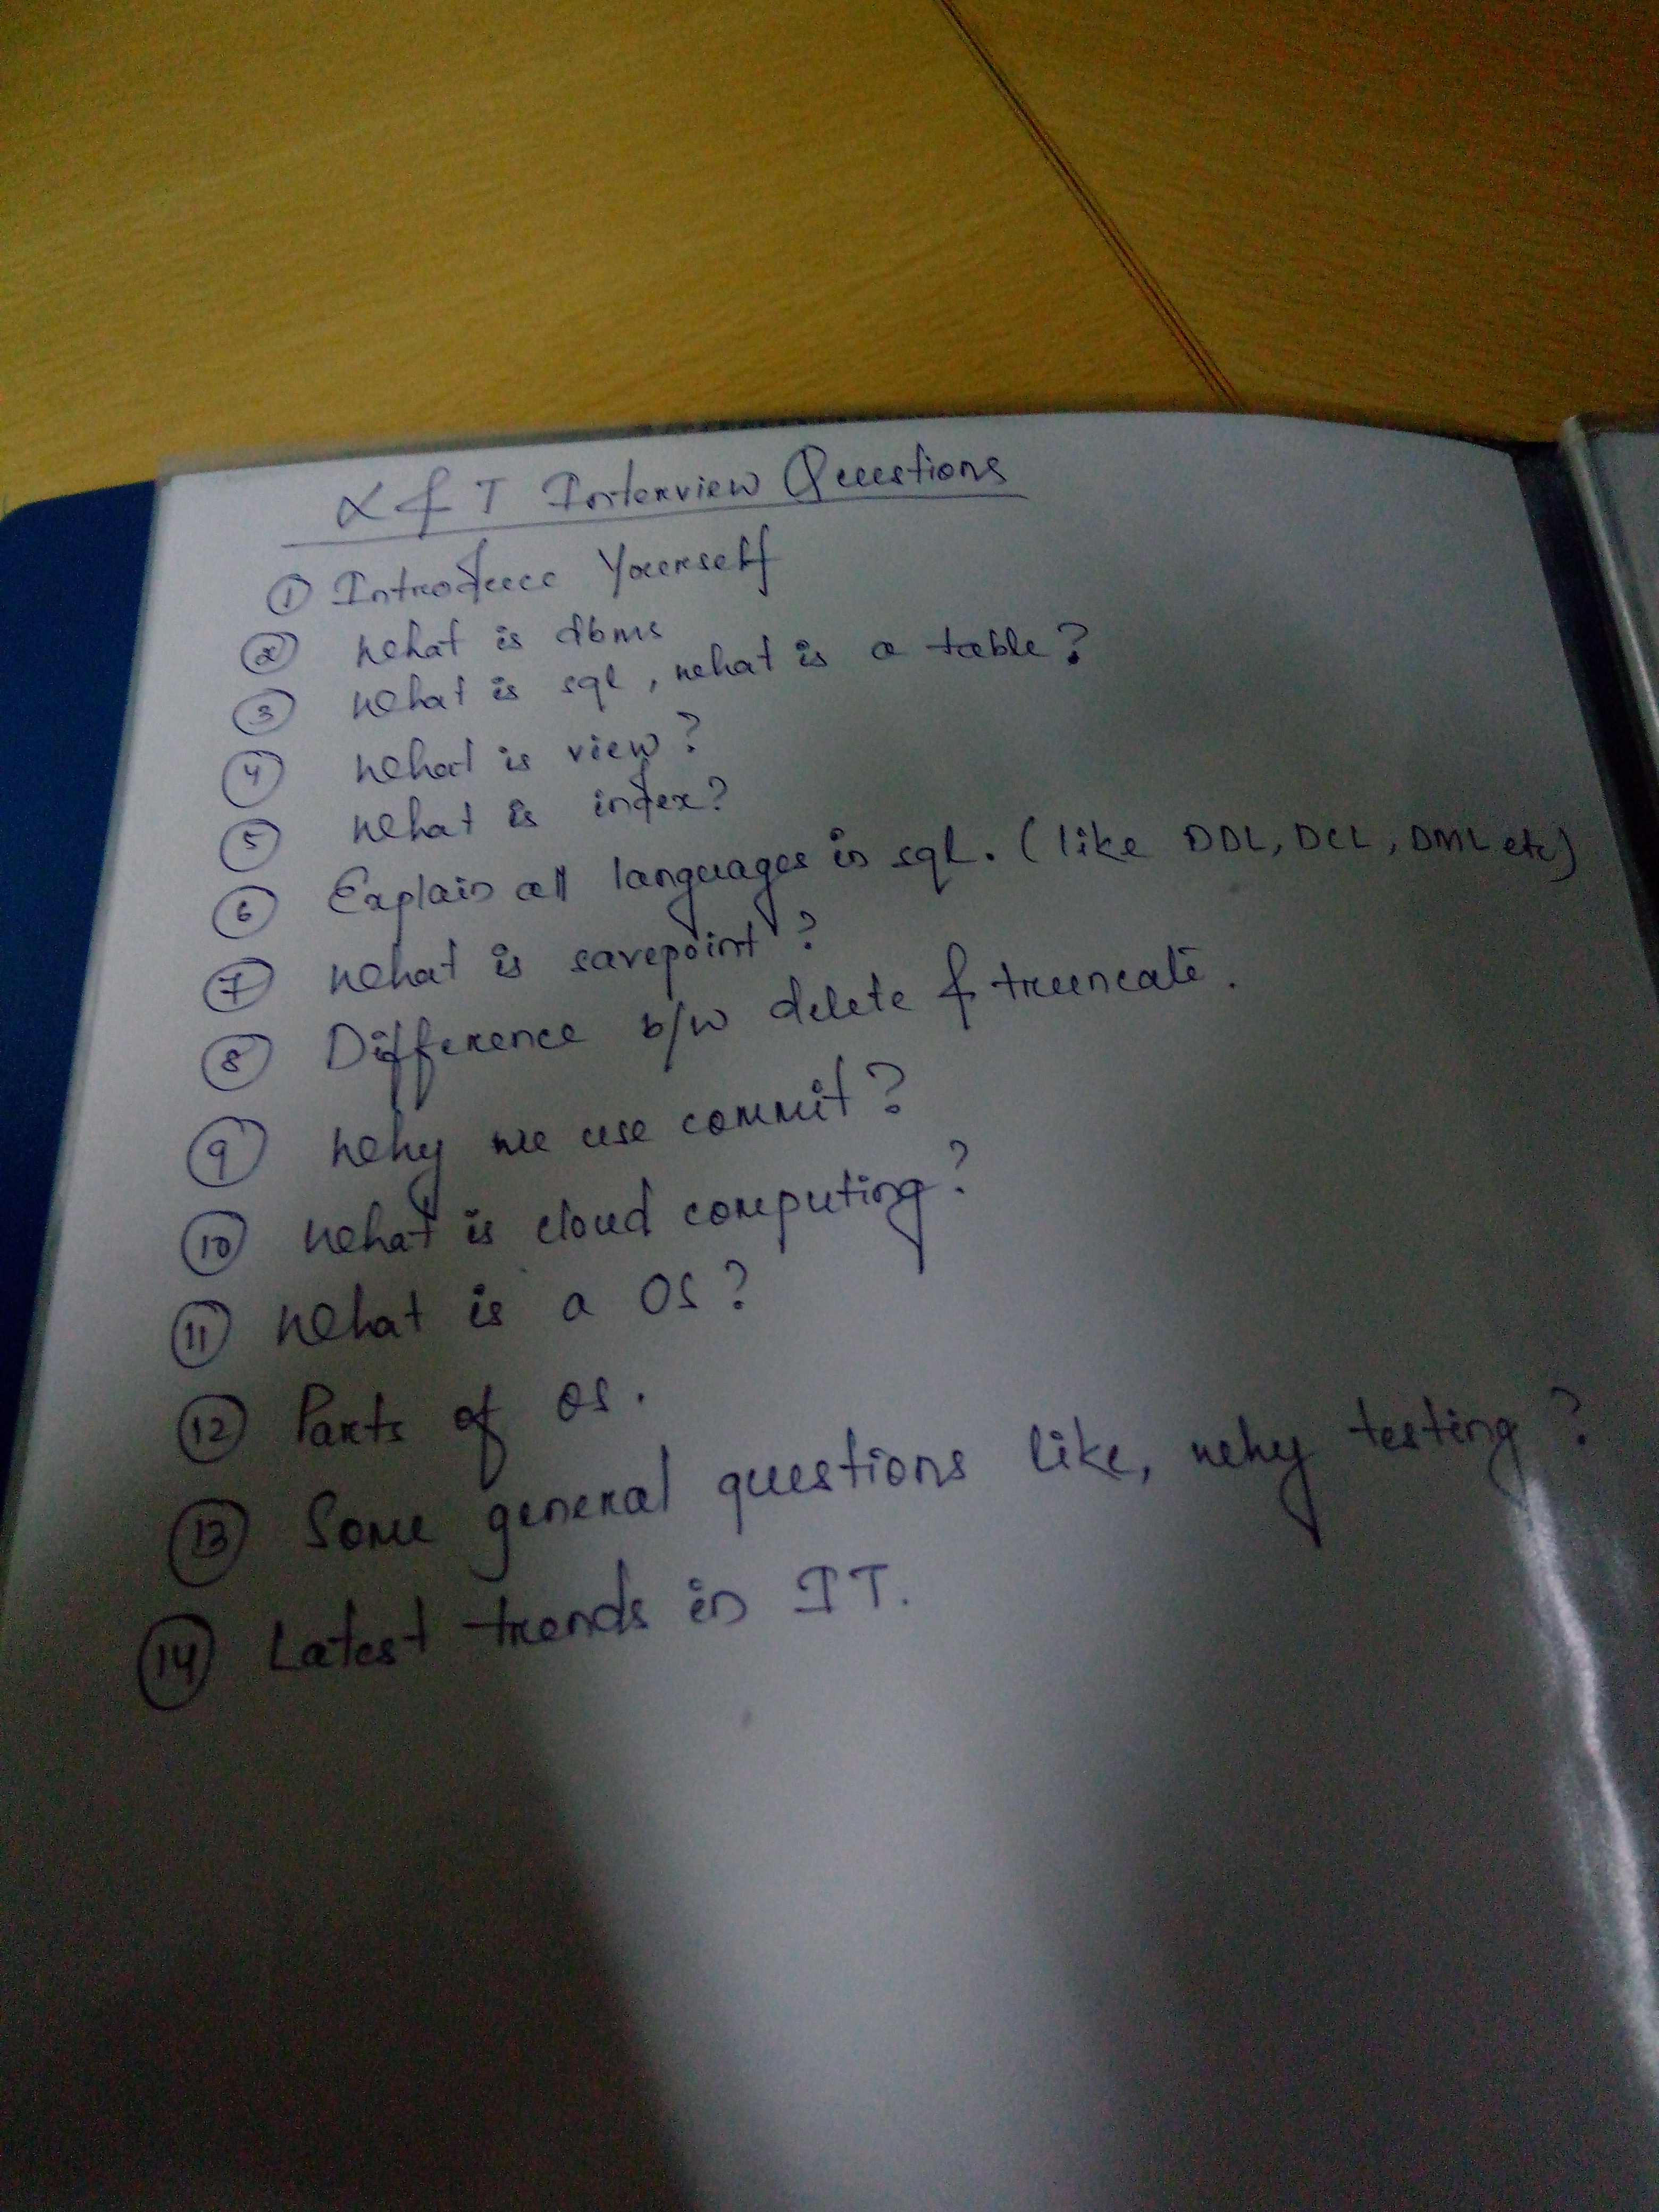 L & T Interview Questions
① Introduce Yourself
② What is dbms
③ What is sql, what is a table?
④ What is view?
⑤ What is index?
⑥ Explain all languages in sql. (like DDL, DCL, DML etc)
⑦ What is savepoint?
⑧ Difference b/w delete & truncate.
⑨ Why we use commit?
⑩ What is cloud computing?
⑪ What is a OS?
⑫ Parts of OS.
⑬ Some general questions like, why testing?
⑭ Latest trends in IT.